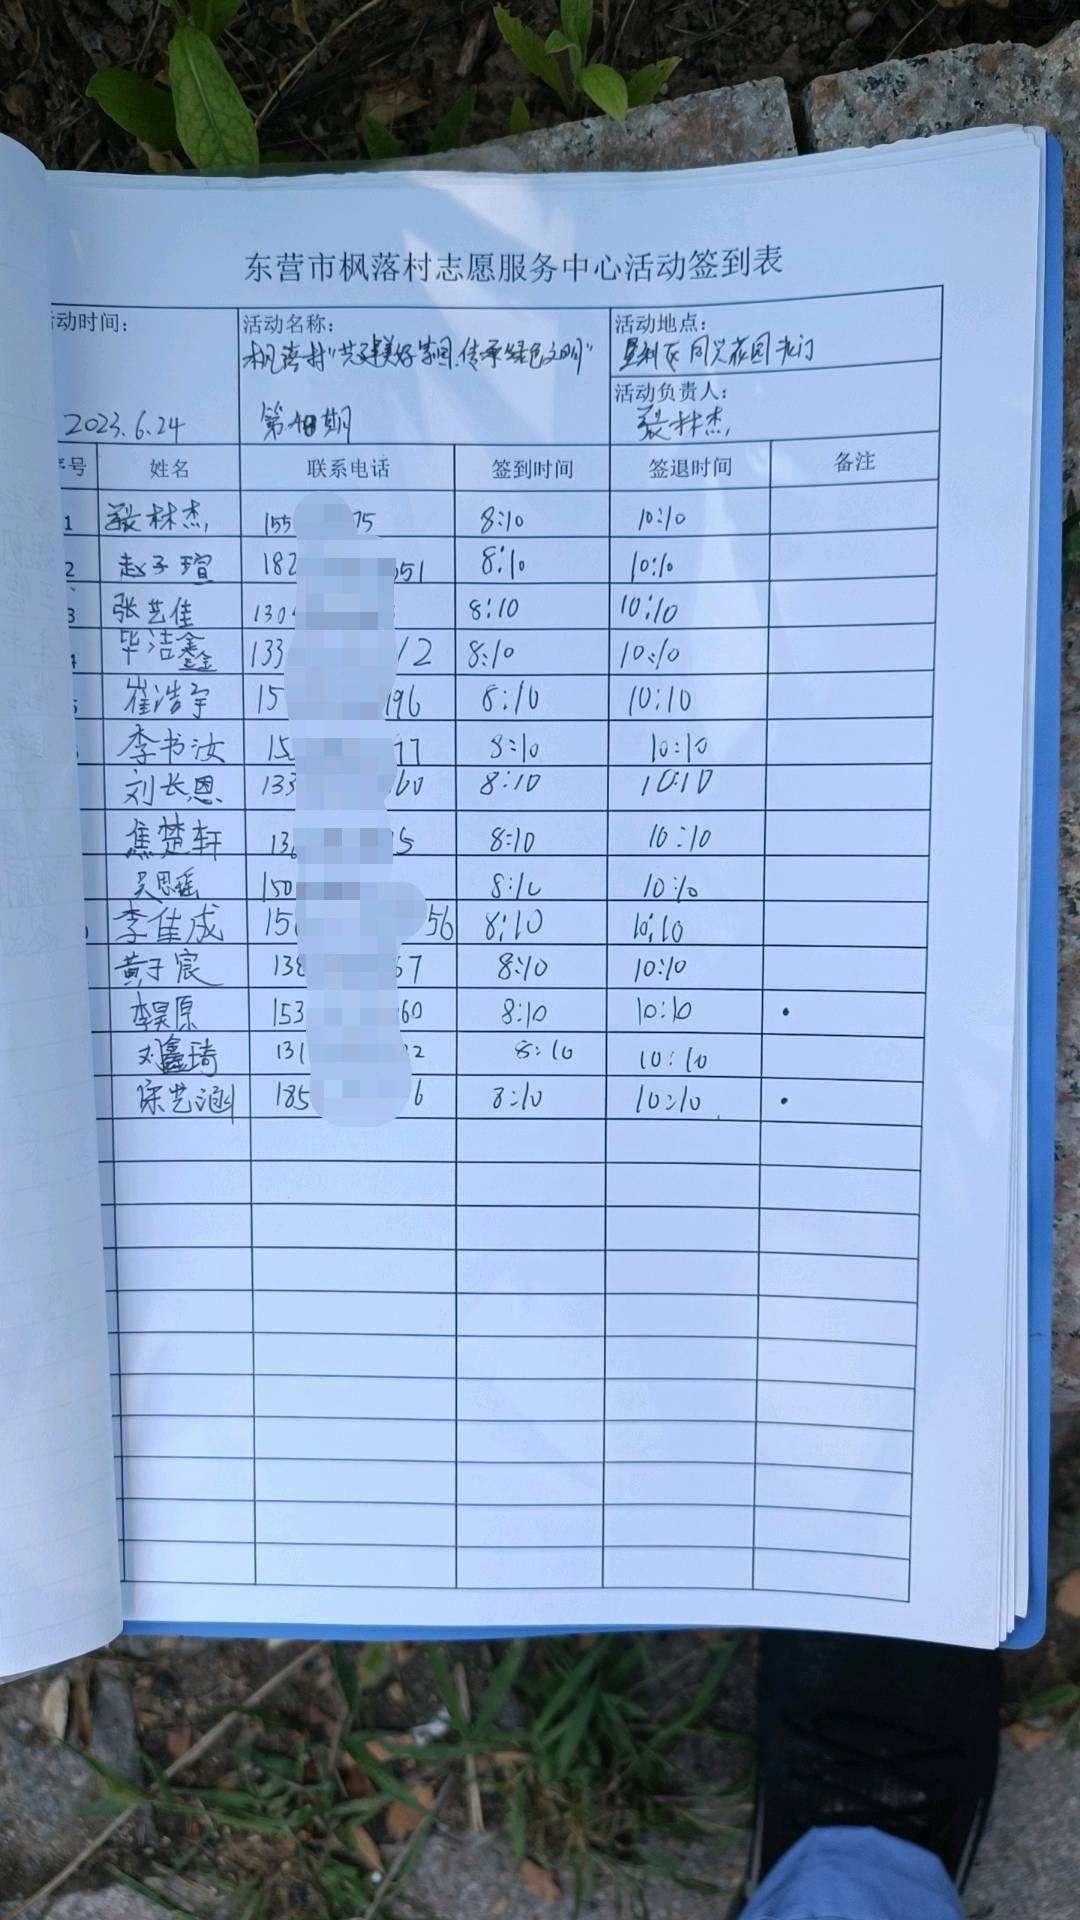 东营市枫落村志愿服务中心活动签到表
动时间: 活动名称: 活动地点:
枫落村"共建美好家园,传承绿色文明" 垦利区同兴花园北门
活动负责人:
2023.6.24 第 期 林杰
序号 姓名 联系电话 签到时间 签退时间 备注
1 林杰 155 75 8:10 10:10
2 赵子瑄 182 551 8:10 10:10
3 张艺佳 130 8:10 10:10
4 毕洁鑫 133 12 8:10 10:10
5 崔浩宇 15 196 8:10 10:10
李书汝 15 77 8:10 10:10
刘长恩 133 60 8:10 10:10
焦楚轩 13 5 8:10 10:10
吴思瑶 150 8:10 10:10
李佳成 15 56 8:10 10:10
黄子宸 138 57 8:10 10:10
李昊原 153 60 8:10 10:10
刘鑫琦 131 2 8:10 10:10
徐艺涵 185 6 8:10 10:10